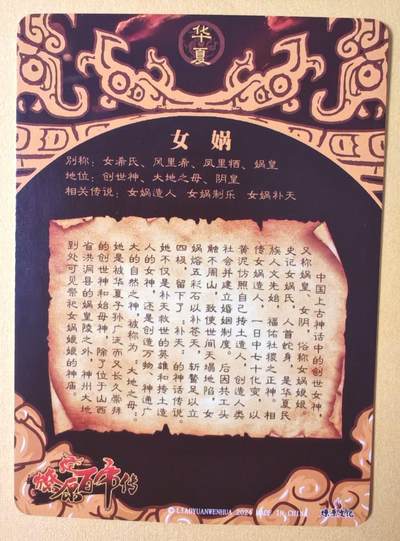 华夏
女娲
别称：女希氏、风里希、凤里牺、娲皇
地位：创世神、大地之母、阴皇
相关传说：女娲造人 女娲制乐 女娲补天
中国上古神话中的创世女神，
又称娲皇、女阴，俗称女娲娘娘。
史记女娲氏，人首蛇身，是华夏民
族人文先始，福佑社稷之正神。相
传女娲造人，一日中七十化变，以
黄泥仿照自己抟土造人，创造人类
社会并建立婚姻制度。后因共工头
触不周山，致使世间天塌地陷，女
娲熔五彩石以补苍天，斩鳌足以立
四极，留下了“补天”的神话传说。
她不仅是补天救世的英雄和抟土造
人的女神，还是创造万物、神通广
大的自然之神，被称为“大地之母”。
她是被华夏子孙广泛而又长久崇拜
的创世神和始母神，除了位于山西
省洪洞县的娲皇陵之外，神州大地
到处可见祭祀女娲娘娘的神庙。
©LIAOYUANWENHUA 2024 MADE IN CHINA
燎原文化